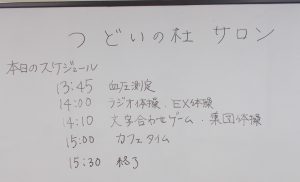 つどいの杜 サロン
本日のスケジュール
13:45 血圧測定
14:00 ラジオ体操、EX体操
14:10 文字合わせゲーム・集団体操
15:00 カフェタイム
15:30 終了